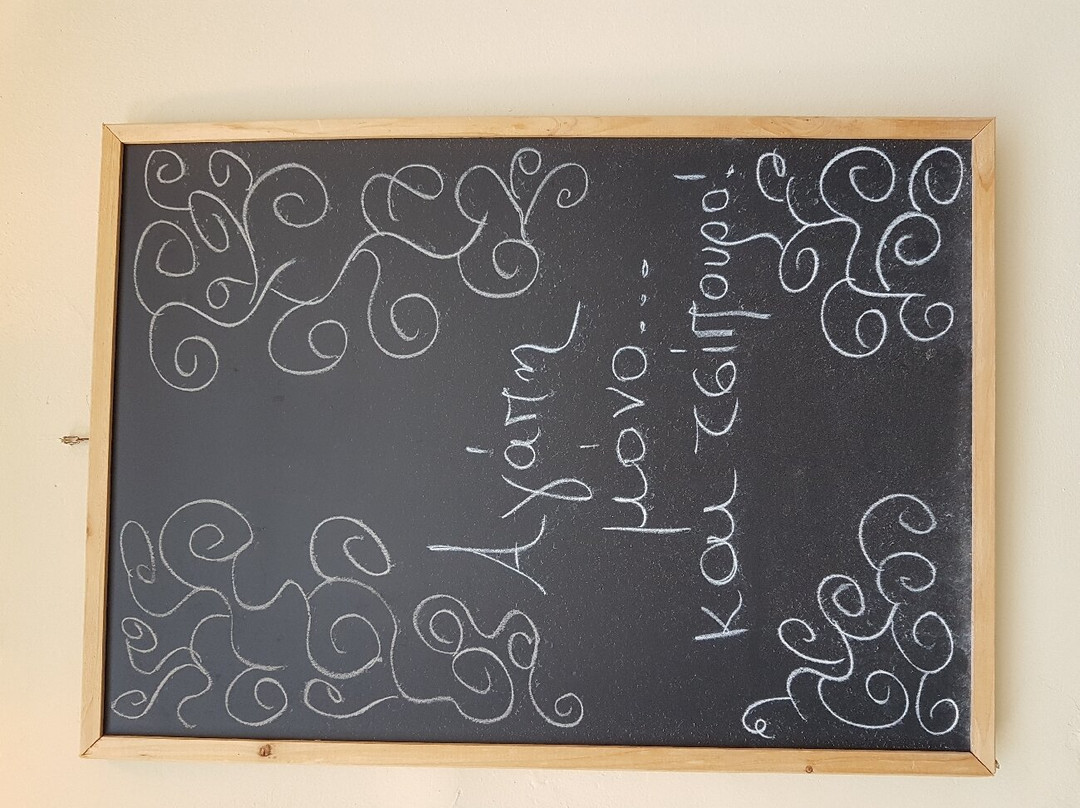 Αγάπη
μόνο....
και τσίπουρο!